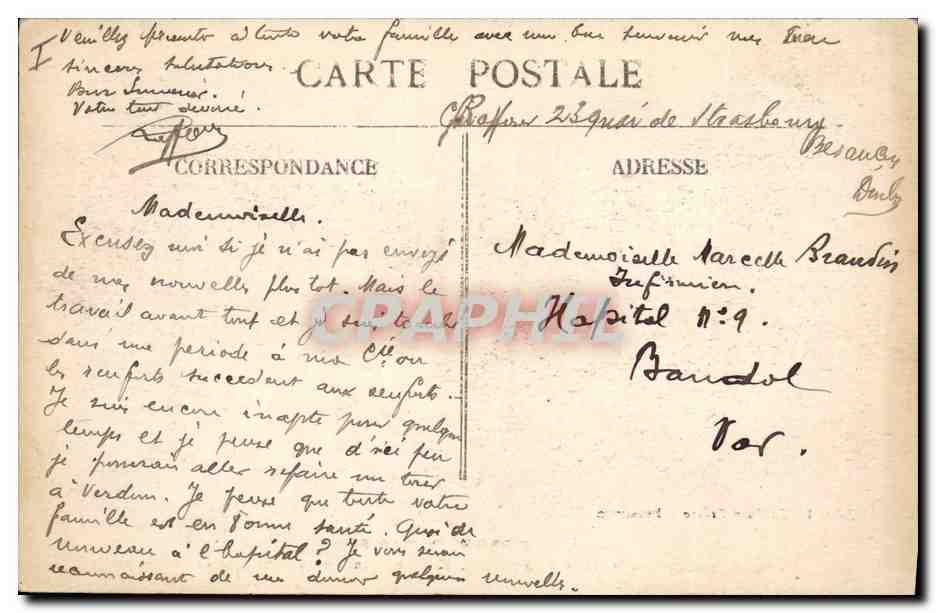 Veuillez présenter à toute votre famille avec mon bon souvenir mes
sincères salutations.
Bon Souvenir.
Votre tout dévoué!
CARTE POSTALE
23 quai de Strasbourg
Besançon
Doubs
CORRESPONDANCE
ADRESSE
Mademoiselle.
Excusez moi si je n'ai pas envoyé
de mes nouvelles plus tot. Mais le
travail avant tout et je suis tombé
dans une periode à ma Cie ou
les renforts succedent aux renforts.
Je suis encore inapte pour quelque
temps et je pense que d'ici peu
je pourrais aller refaire un tour
à Verdun. Je pense que toute votre
famille est en bonne santé. Quoi de
nouveau à l'hopital? Je vous serais
reconnaissant de me donner quelques nouvelles.
Mademoiselle Marcelle Brandin
Infirmière.
Hopital N° 9.
Bandol
Var.
CPAPHIL